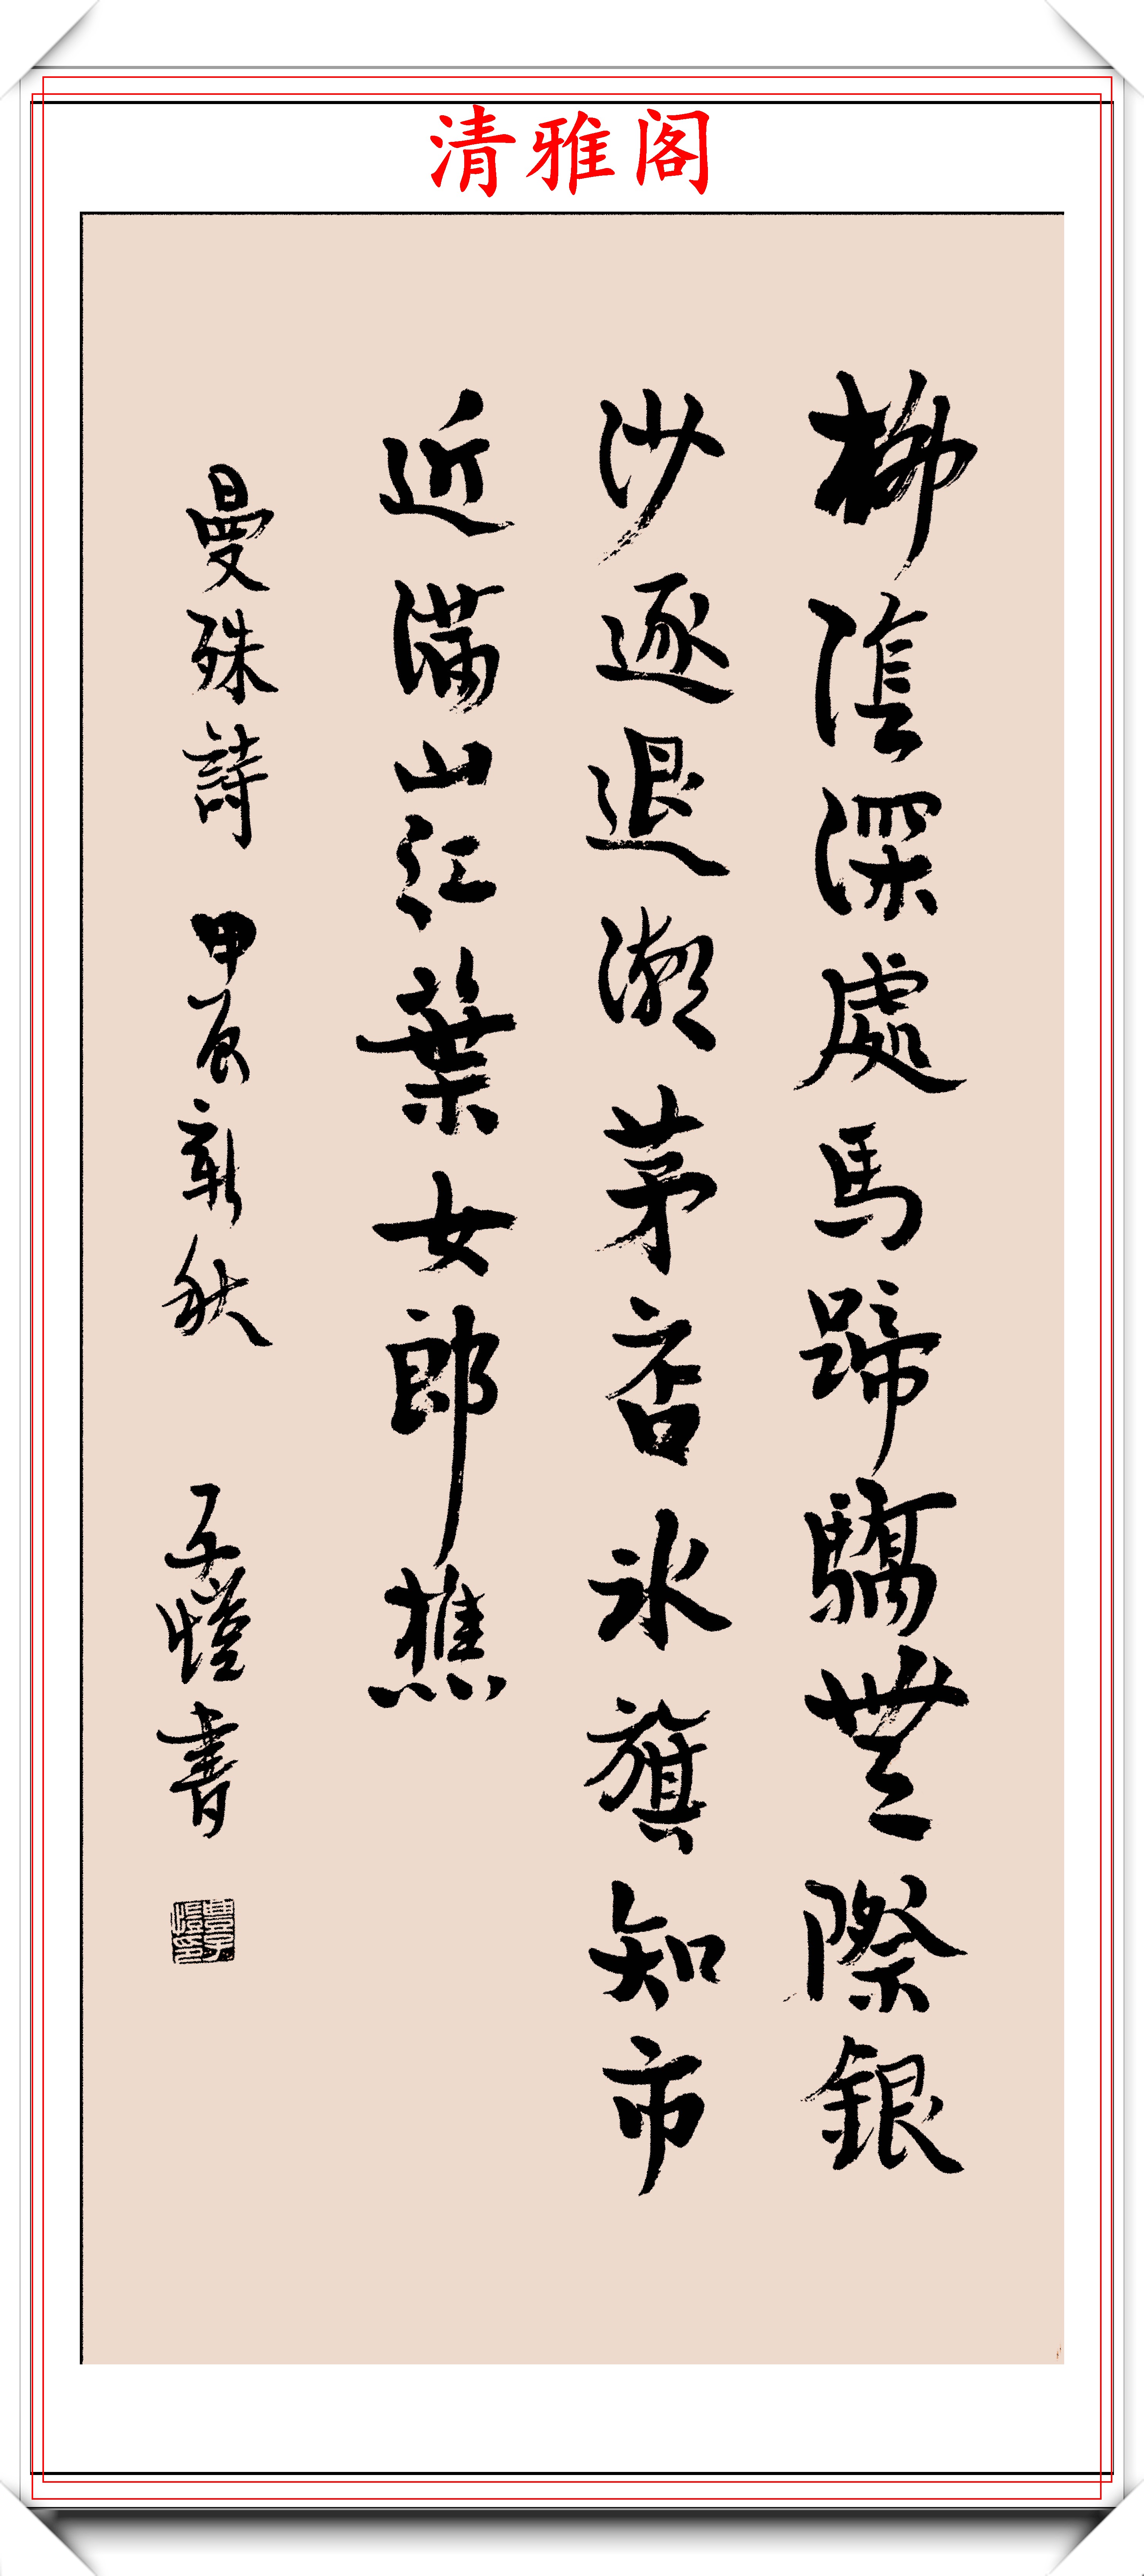 清雅阁
柳陰深處馬蹄驕無際銀
沙逐退潮茅店冰旗知市
近满山红葉女郎樵
曼殊詩 甲辰新秋 子愷書
豐子愷印